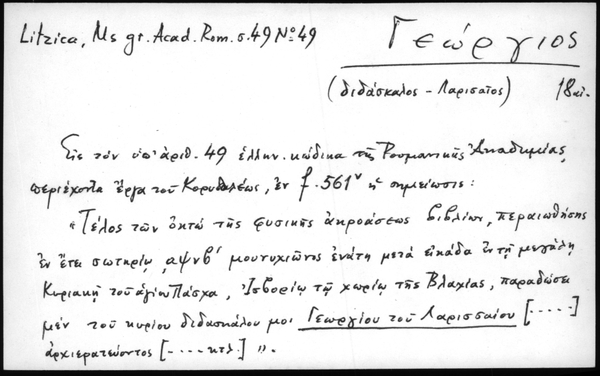 Litzica, Ms gr. Acad. Rom. σ. 49 Nº 49
Γεώργιος
(διδάσκαλος - Λαρισαῖος) 18 αἰ.
Εἰς τὸν ὑπ' ἀριθ. 49 ἑλλην. κώδικα τῆς Ρουμανικῆς Ἀκαδημίας,
περιέχοντα ἔργα τοῦ Κορυδαλέως, ἐν f. 561ᵛ ἡ σημείωσις:
"Τέλος τῶν ὀκτώ τῆς φυσικῆς ἀκροάσεως βιβλίων, περαιωθήσης
ἐν ἔτει σωτηρίῳ ͵αψνβ´ μουνυχιῶνος ἐνάτῃ μετά εἰκάδα ἐν τῇ μεγάλῃ
Κυριακῇ τοῦ ἁγίου Πάσχα, Ἰσβορίῳ τῷ χωρίῳ τῆς Βλαχίας, παραδώσει
μέν τοῦ κυρίου διδασκάλου μοι Γεωργίου τοῦ Λαρισσαίου [.....]
ἀρχιερατεύοντος [.... κτλ.] ".